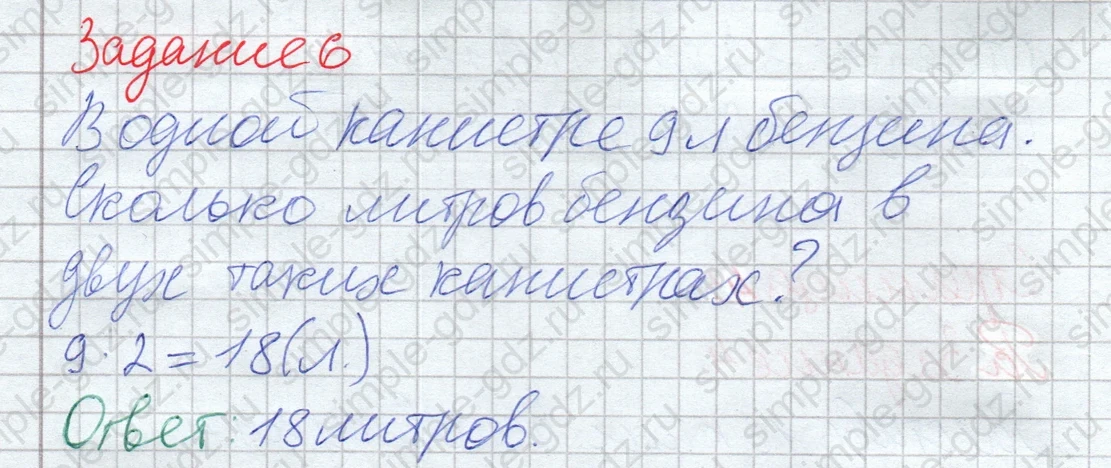 Задание 6
В одной канистре 9 л бензина.
Сколько литров бензина в
двух таких канистрах?
9 · 2 = 18 (л.)
Ответ: 18 литров.
simple-gdz.ru